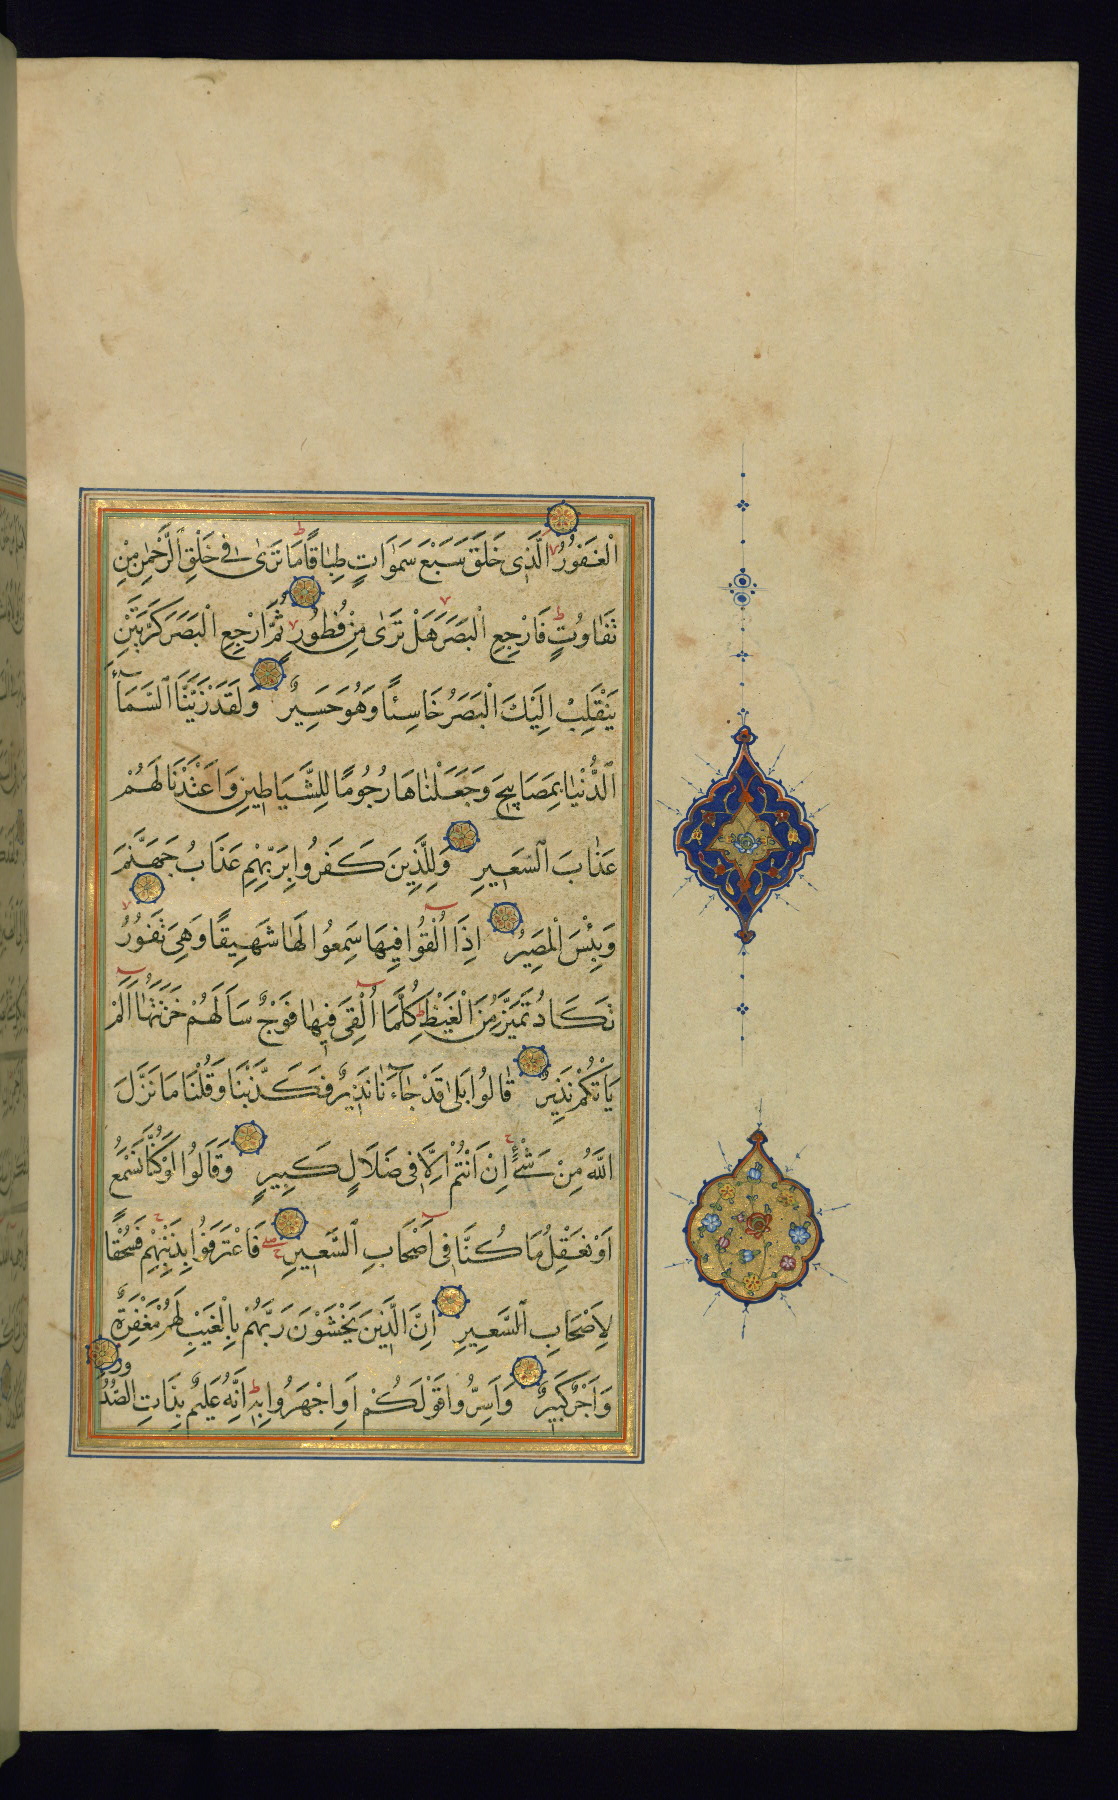 الْغَفُورُ الَّذِى خَلَقَ سَبْعَ سَمٰوَاتٍ طِبَاقًا مَا تَرٰى فِى خَلْقِ الرَّحْمٰنِ مِنْ
تَفَاوُتٍ فَارْجِعِ الْبَصَرَ هَلْ تَرٰى مِنْ فُطُورٍ ثُمَّ ارْجِعِ الْبَصَرَ كَرَّتَيْنِ
يَنْقَلِبْ اِلَيْكَ الْبَصَرُ خَاسِئًا وَهُوَ حَسِيرٌ وَلَقَدْ زَيَّنَّا السَّمَآءَ
الدُّنْيَا بِمَصَابِيحَ وَجَعَلْنَاهَا رُجُومًا لِلشَّيَاطِينِ وَاَعْتَدْنَا لَهُمْ
عَذَابَ السَّعِيرِ وَلِلَّذِينَ كَفَرُوا بِرَبِّهِمْ عَذَابُ جَهَنَّمَ
وَبِئْسَ الْمَصِيرُ اِذَا اُلْقُوا فِيهَا سَمِعُوا لَهَا شَهِيقًا وَهِىَ تَفُورُ
تَكَادُ تَمَيَّزُ مِنَ الْغَيْظِ كُلَّمَا اُلْقِىَ فِيهَا فَوْجٌ سَاَلَهُمْ خَزَنَتُهَا اَلَمْ
يَاْتِكُمْ نَذِيرٌ قَالُوا بَلٰى قَدْ جَآءَنَا نَذِيرٌ فَكَذَّبْنَا وَقُلْنَا مَا نَزَّلَ
اللّٰهُ مِنْ شَىْءٍ اِنْ اَنْتُمْ اِلَّا فِى ضَلَالٍ كَبِيرٍ وَقَالُوا لَوْ كُنَّا نَسْمَعُ
اَوْ نَعْقِلُ مَا كُنَّا فِى اَصْحَابِ السَّعِيرِ فَاعْتَرَفُوا بِذَنْبِهِمْ فَسُحْقًا
لِاَصْحَابِ السَّعِيرِ اِنَّ الَّذِينَ يَخْشَوْنَ رَبَّهُمْ بِالْغَيْبِ لَهُمْ مَغْفِرَةٌ
وَاَجْرٌ كَبِيرٌ وَاَسِرُّوا قَوْلَكُمْ اَوِ اجْهَرُوا بِهِ اِنَّهُ عَلِيمٌ بِذَاتِ الصُّدُورِ